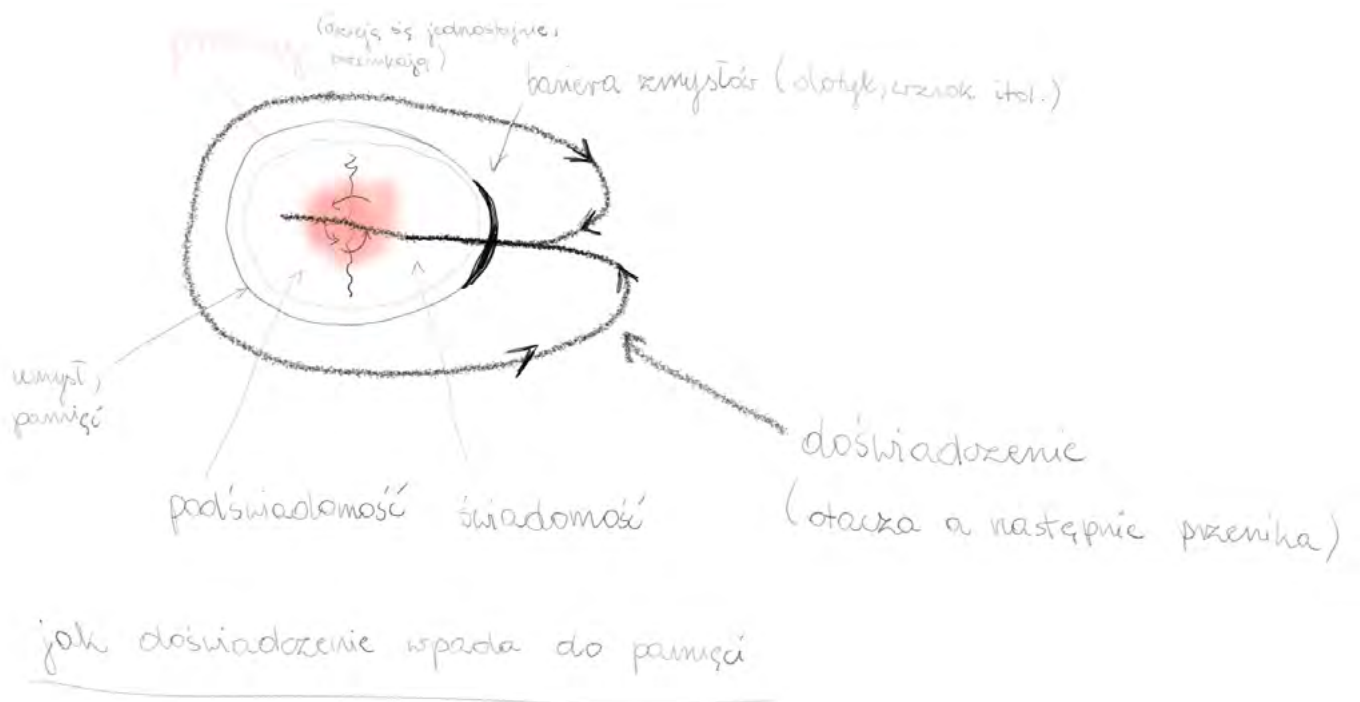 (dzieją się jednostajnie,
przenikają)
bariera zmysłów (dotyk, wzrok itd.)
umysł,
pamięć
podświadomość
świadomość
doświadczenie
(otacza a następnie przenika)
jak doświadczenie wpada do pamięci